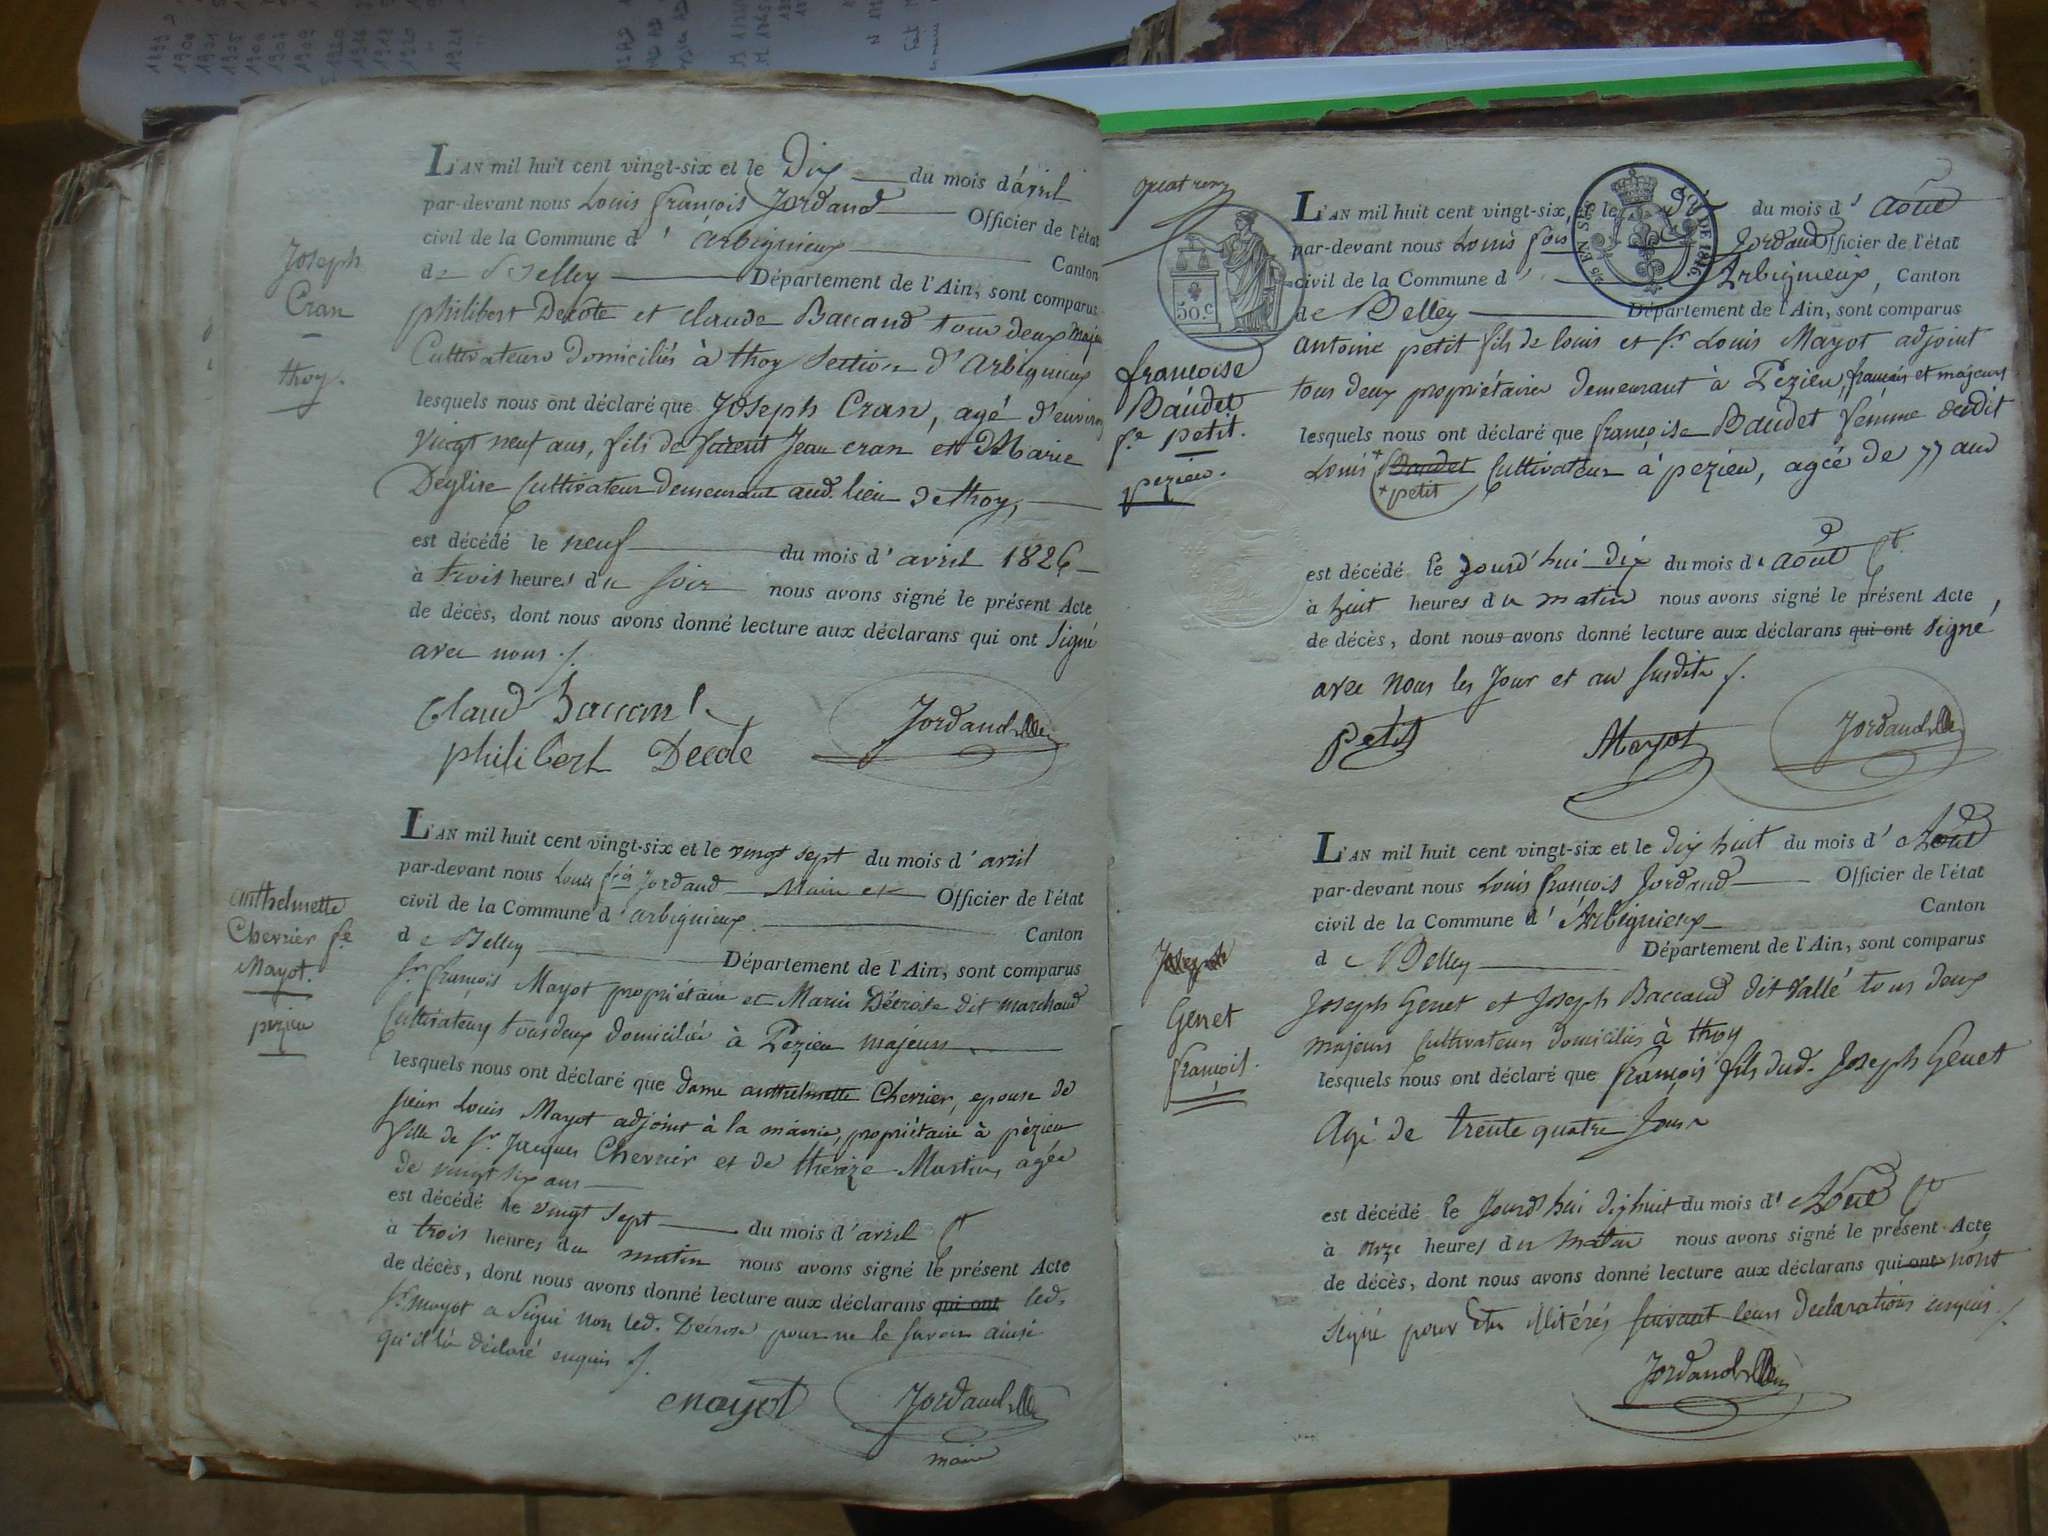 Joseph
Cran
thoy.
L'AN mil huit cent vingt-six et le Dix du mois d'avril
par-devant nous Louis françois Jordand Officier de l'état
civil de la Commune d'arbignieux Canton
de Belley Département de l'Ain, sont comparus
philibert Decote et claude Baccand tous deux majeurs
Cultivateurs domiciliés à thoy section d'Arbignieux
lesquels nous ont déclaré que Joseph Cran, agé d'environ
vingt neuf ans, fils de Jean cran et Marie
Deglise Cultivateur demeurant aud. lieu de thoy,
est décédé le neuf du mois d'avril 1826
à trois heures du soir nous avons signé le présent Acte
de décès, dont nous avons donné lecture aux déclarans qui ont signé
avec nous
Claud Baccan
philibert Decote
Jordand
anthelmette
Chervier fe
Mayot.
pezieu
L'AN mil huit cent vingt-six et le vingt sept du mois d'avril
par-devant nous Louis fçois Jordand Maire et Officier de l'état
civil de la Commune d'arbignieux Canton
de Belley Département de l'Ain, sont comparus
Sr. françois Mayot propriétaire et Marin Décrose dit marchand
Cultivateurs tous deux domiciliés à Pezieu majeurs
lesquels nous ont déclaré que dame anthelmette Chervier, epouse de
sieur Louis Mayot adjoint à la mairie, propriétaire à pèzieu
fille de Sr. Jacques Chervier et de thereze Martin, agée
de vingt six ans
est décédé le vingt sept du mois d'avril
à trois heures du matin nous avons signé le présent Acte
de décès, dont nous avons donné lecture aux déclarans qui ont led.
Sr. mayot a signé non led. Décrose pour ne le savoir ainsi
qu'il l'a déclaré enquis
mayot
Jordand
maire
quatre
50.c
françoise
Baudet
fe petit.
pezieu.
L'AN mil huit cent vingt-six, et le du mois d'Août
par-devant nous Louis fçois Jordand Officier de l'état
civil de la Commune d'Arbignieux, Canton
de Belley Département de l'Ain, sont comparus
antoine petit fils de louis et Sr. Louis Mayot adjoint
tous deux propriétaires demeurant à Pezieu, français et majeurs
lesquels nous ont déclaré que françoise Baudet femme dudit
Louis + Baudet cultivateur à pezieu, agée de 77 ans
+ petit
est décédé le Jourd'hui dix du mois d'août
à huit heures du matin nous avons signé le présent Acte
de décès, dont nous avons donné lecture aux déclarans qui ont signé
avec nous les Jour et an susdits
Petit
Mayot
Jordand
Joseph
Genet
françois.
L'AN mil huit cent vingt-six et le dix huit du mois d'Août
par-devant nous Louis françois Jordand Officier de l'état
civil de la Commune d'Arbignieux Canton
de Belley Département de l'Ain, sont comparus
Joseph Genet et Joseph Baccand dit Vallé tous deux
majeurs cultivateurs domiciliés à thoy
lesquels nous ont déclaré que françois fils dud. Joseph Genet
Agé de trente quatre Jours
est décédé le Jourd'hui dix huit du mois d'Août
à onze heures du matin nous avons signé le présent Acte
de décès, dont nous avons donné lecture aux déclarans qui ont n'ont
signé pour être illitérés suivant leurs declarations enquis
Jordand